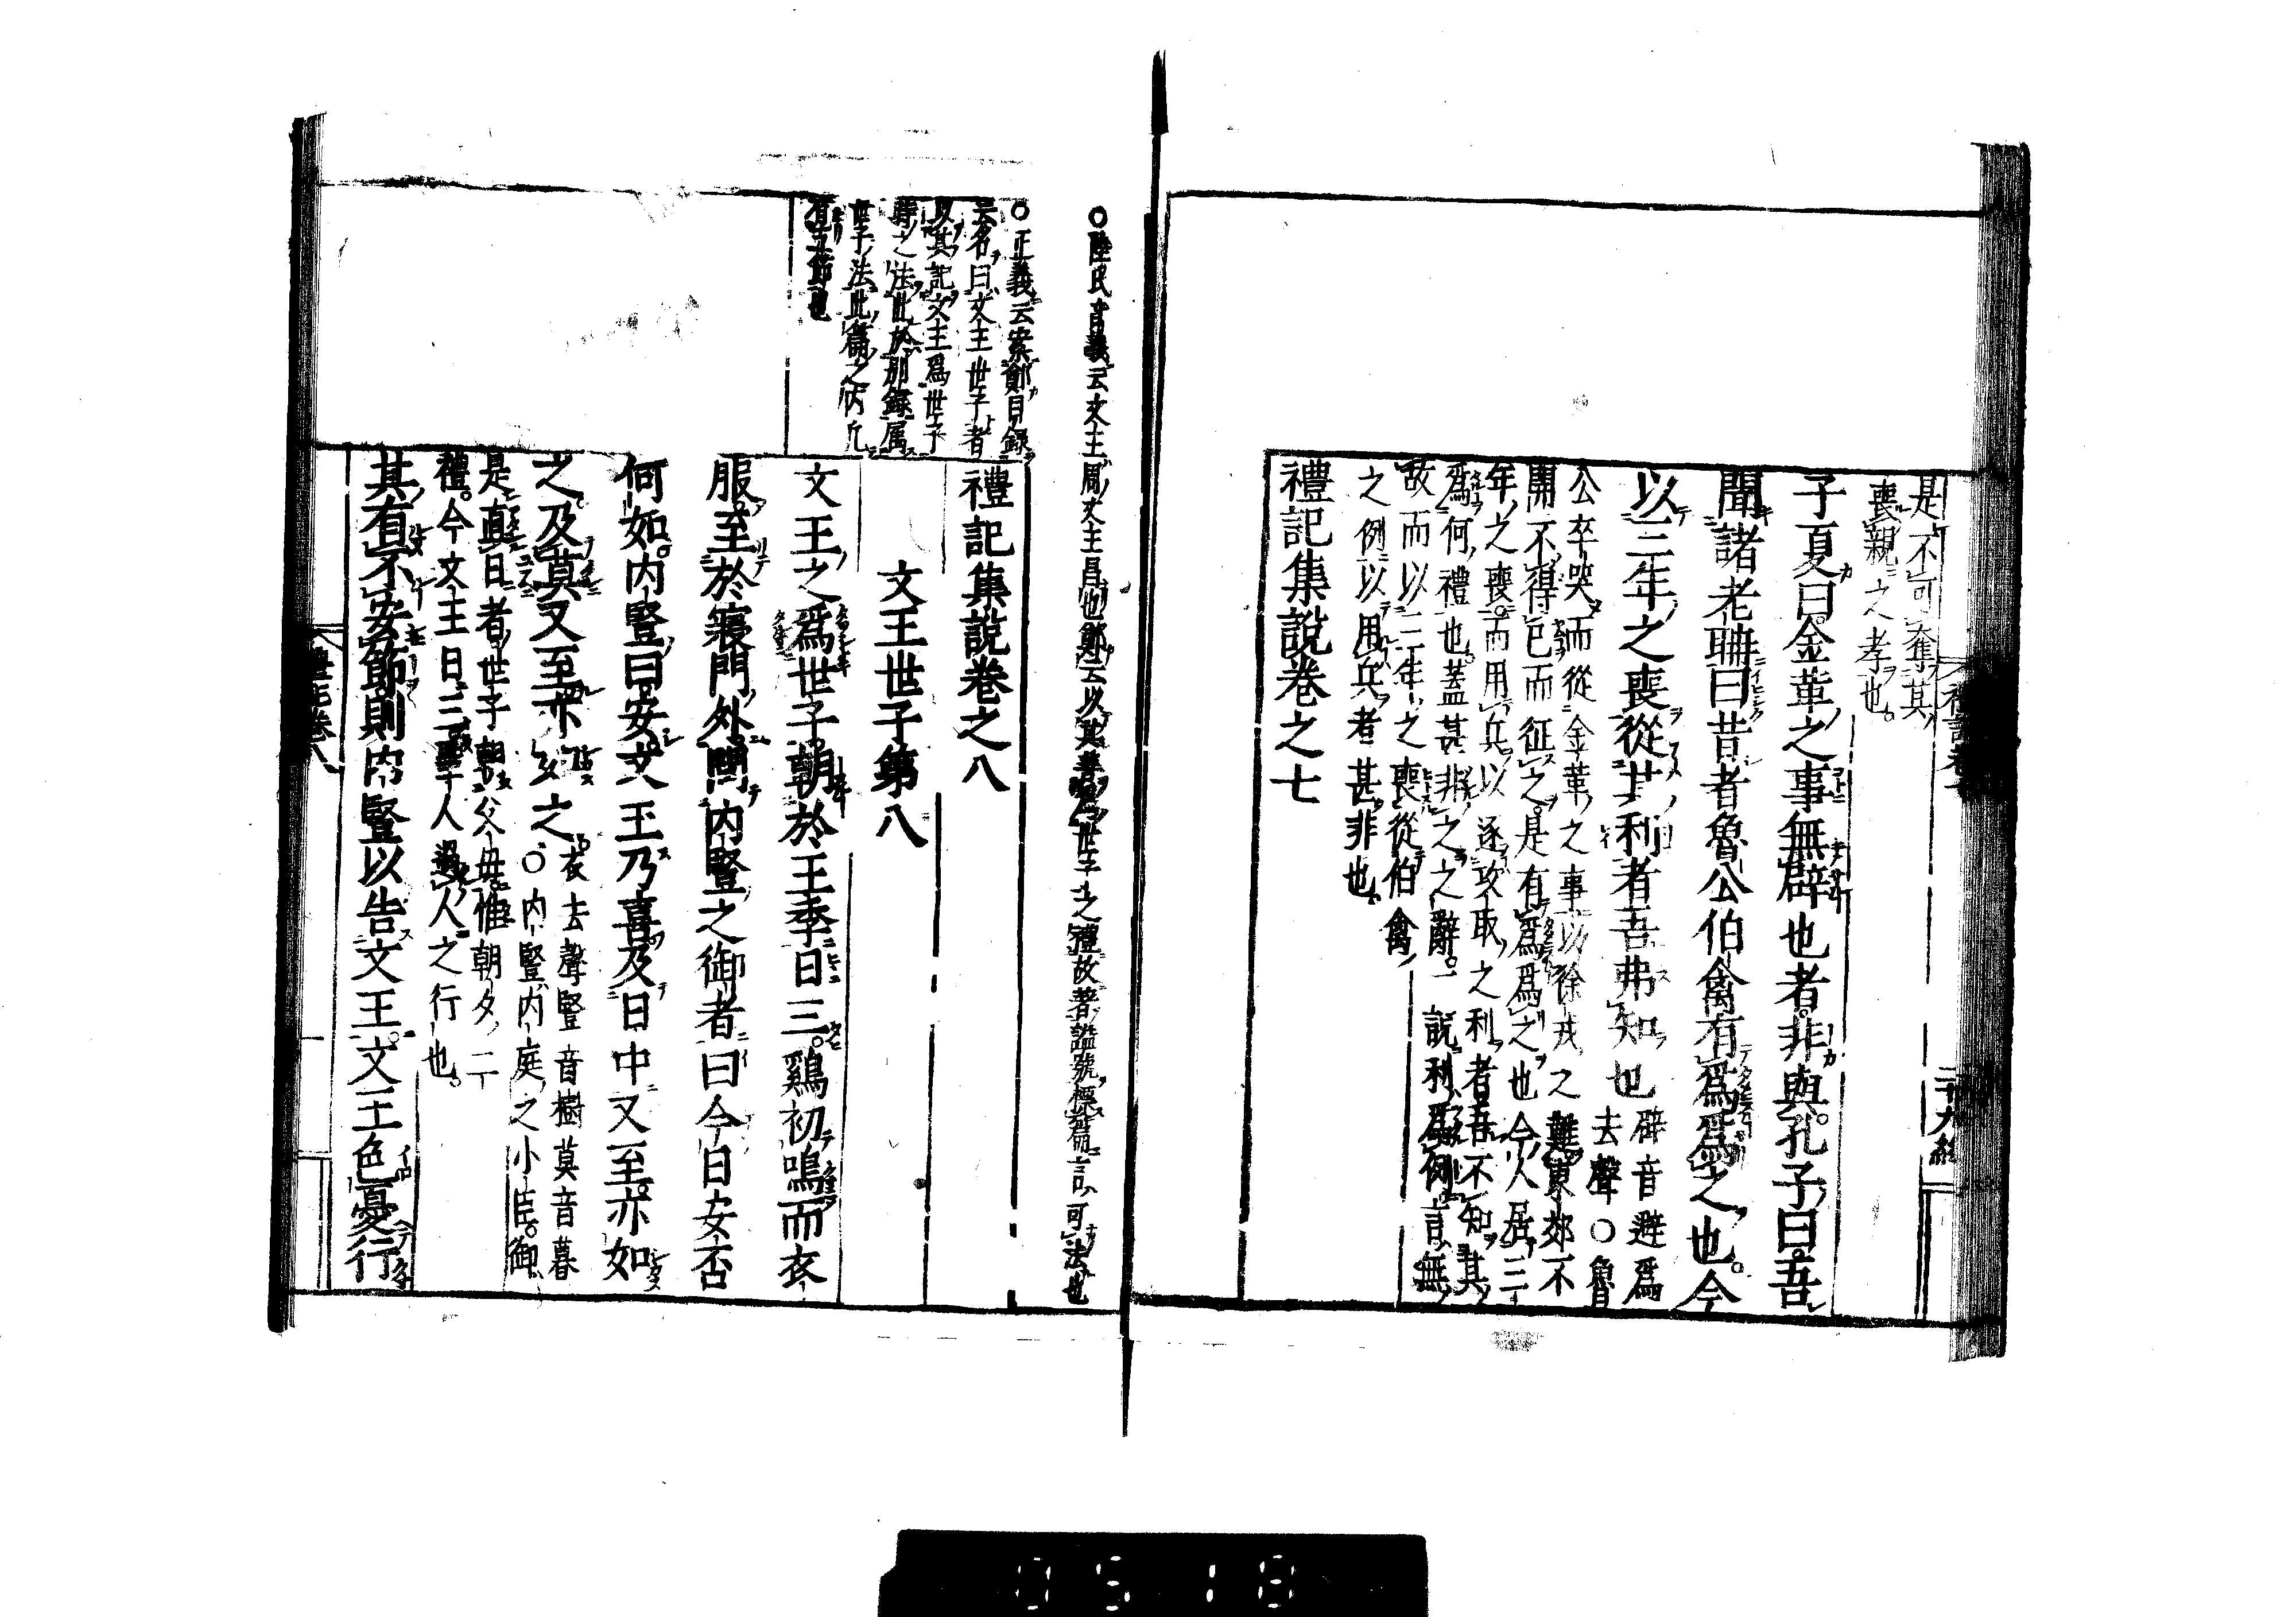 是不可奪其
喪親之孝也。
子夏曰。金革之事無辟也者。非與。孔子曰。吾
聞諸老聃曰。昔者魯公伯禽有爲爲之也。今
以三年之喪從其利者吾弗知也
辟音避爲
去聲○魯
公卒哭而從金革之事以徐戎之難東郊不
開不得已而征之。是有爲爲之也今人居三
年之喪。而用兵。以逐攻取之利者吾不知其
爲何禮也。蓋甚非之之辭。一說利爲例。言無
故而以三年之喪從伯禽
之例以用兵者甚非也
禮記集說卷之七
○陸氏音義云文王周文王昌也鄭云以其善爲世子之禮故著謚號標篇言可法也
○正義云案鄭目録
云名曰文王世子者
以其記文王爲世子
時之法此於別録屬
世子法此篇之内凡
有五節也
禮記集說卷之八
文王世子第八
文王之爲世子朝於王季日三。鷄初鳴而衣
服。至於寢門外。問内豎之御者曰今日安否
何如。内豎曰安。文王乃喜。及日中又至。亦如
之。及莫又至。亦如之。
衣去聲豎音樹莫音暮
○内豎内庭之小臣。御
是直日者世子朝父母惟朝夕二
禮。今文王日三聖人過人之行也。
其有不安節則内豎以告文王。文王色憂。行
禮記卷八
0518